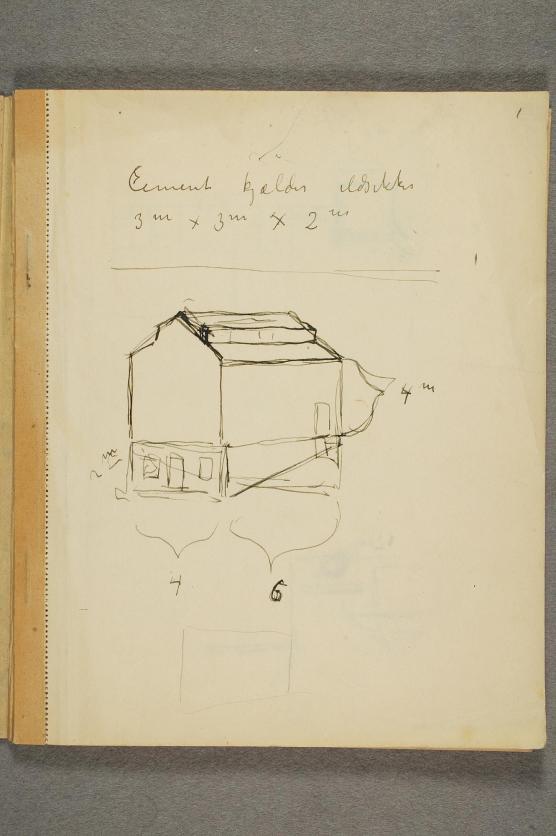 Cement kjælder ildsikker
3 m x 3 m x 2 m
4 m
2 m
4
6